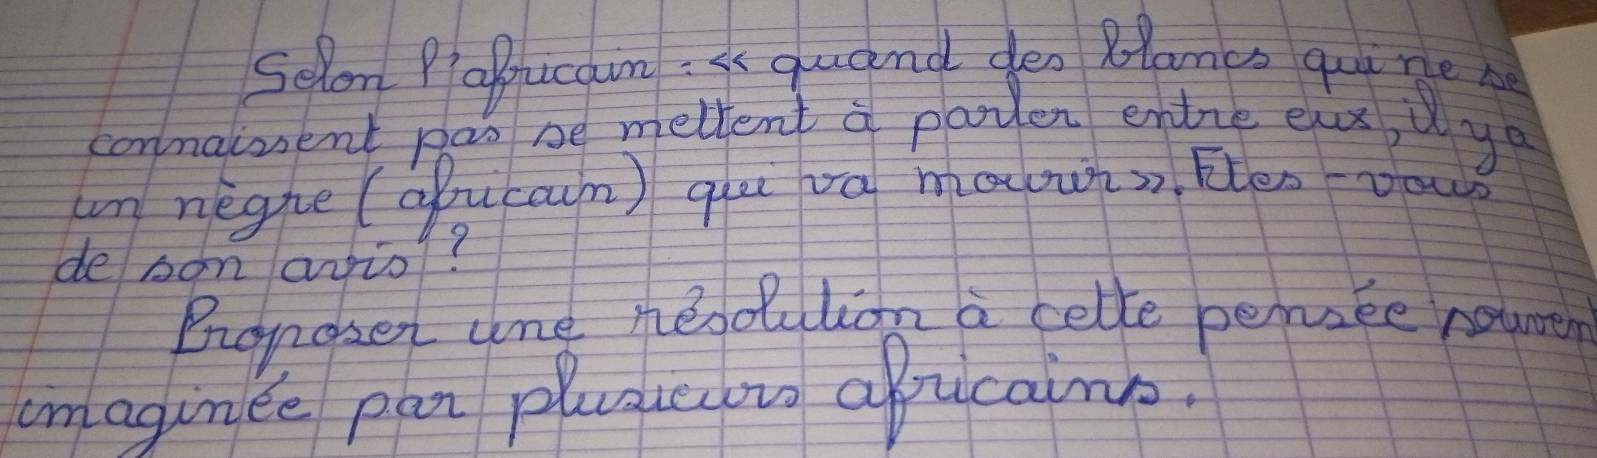 Selon l'africain : « quand des blancs qui ne se
connaissent pas se mettent à parler entre eux, il y a
un nègre (africain) qui va mourir ». Etes-vous
de son avis ?
Proposer une résolution à cette pensée souvent
imaginée par plusieurs africains.